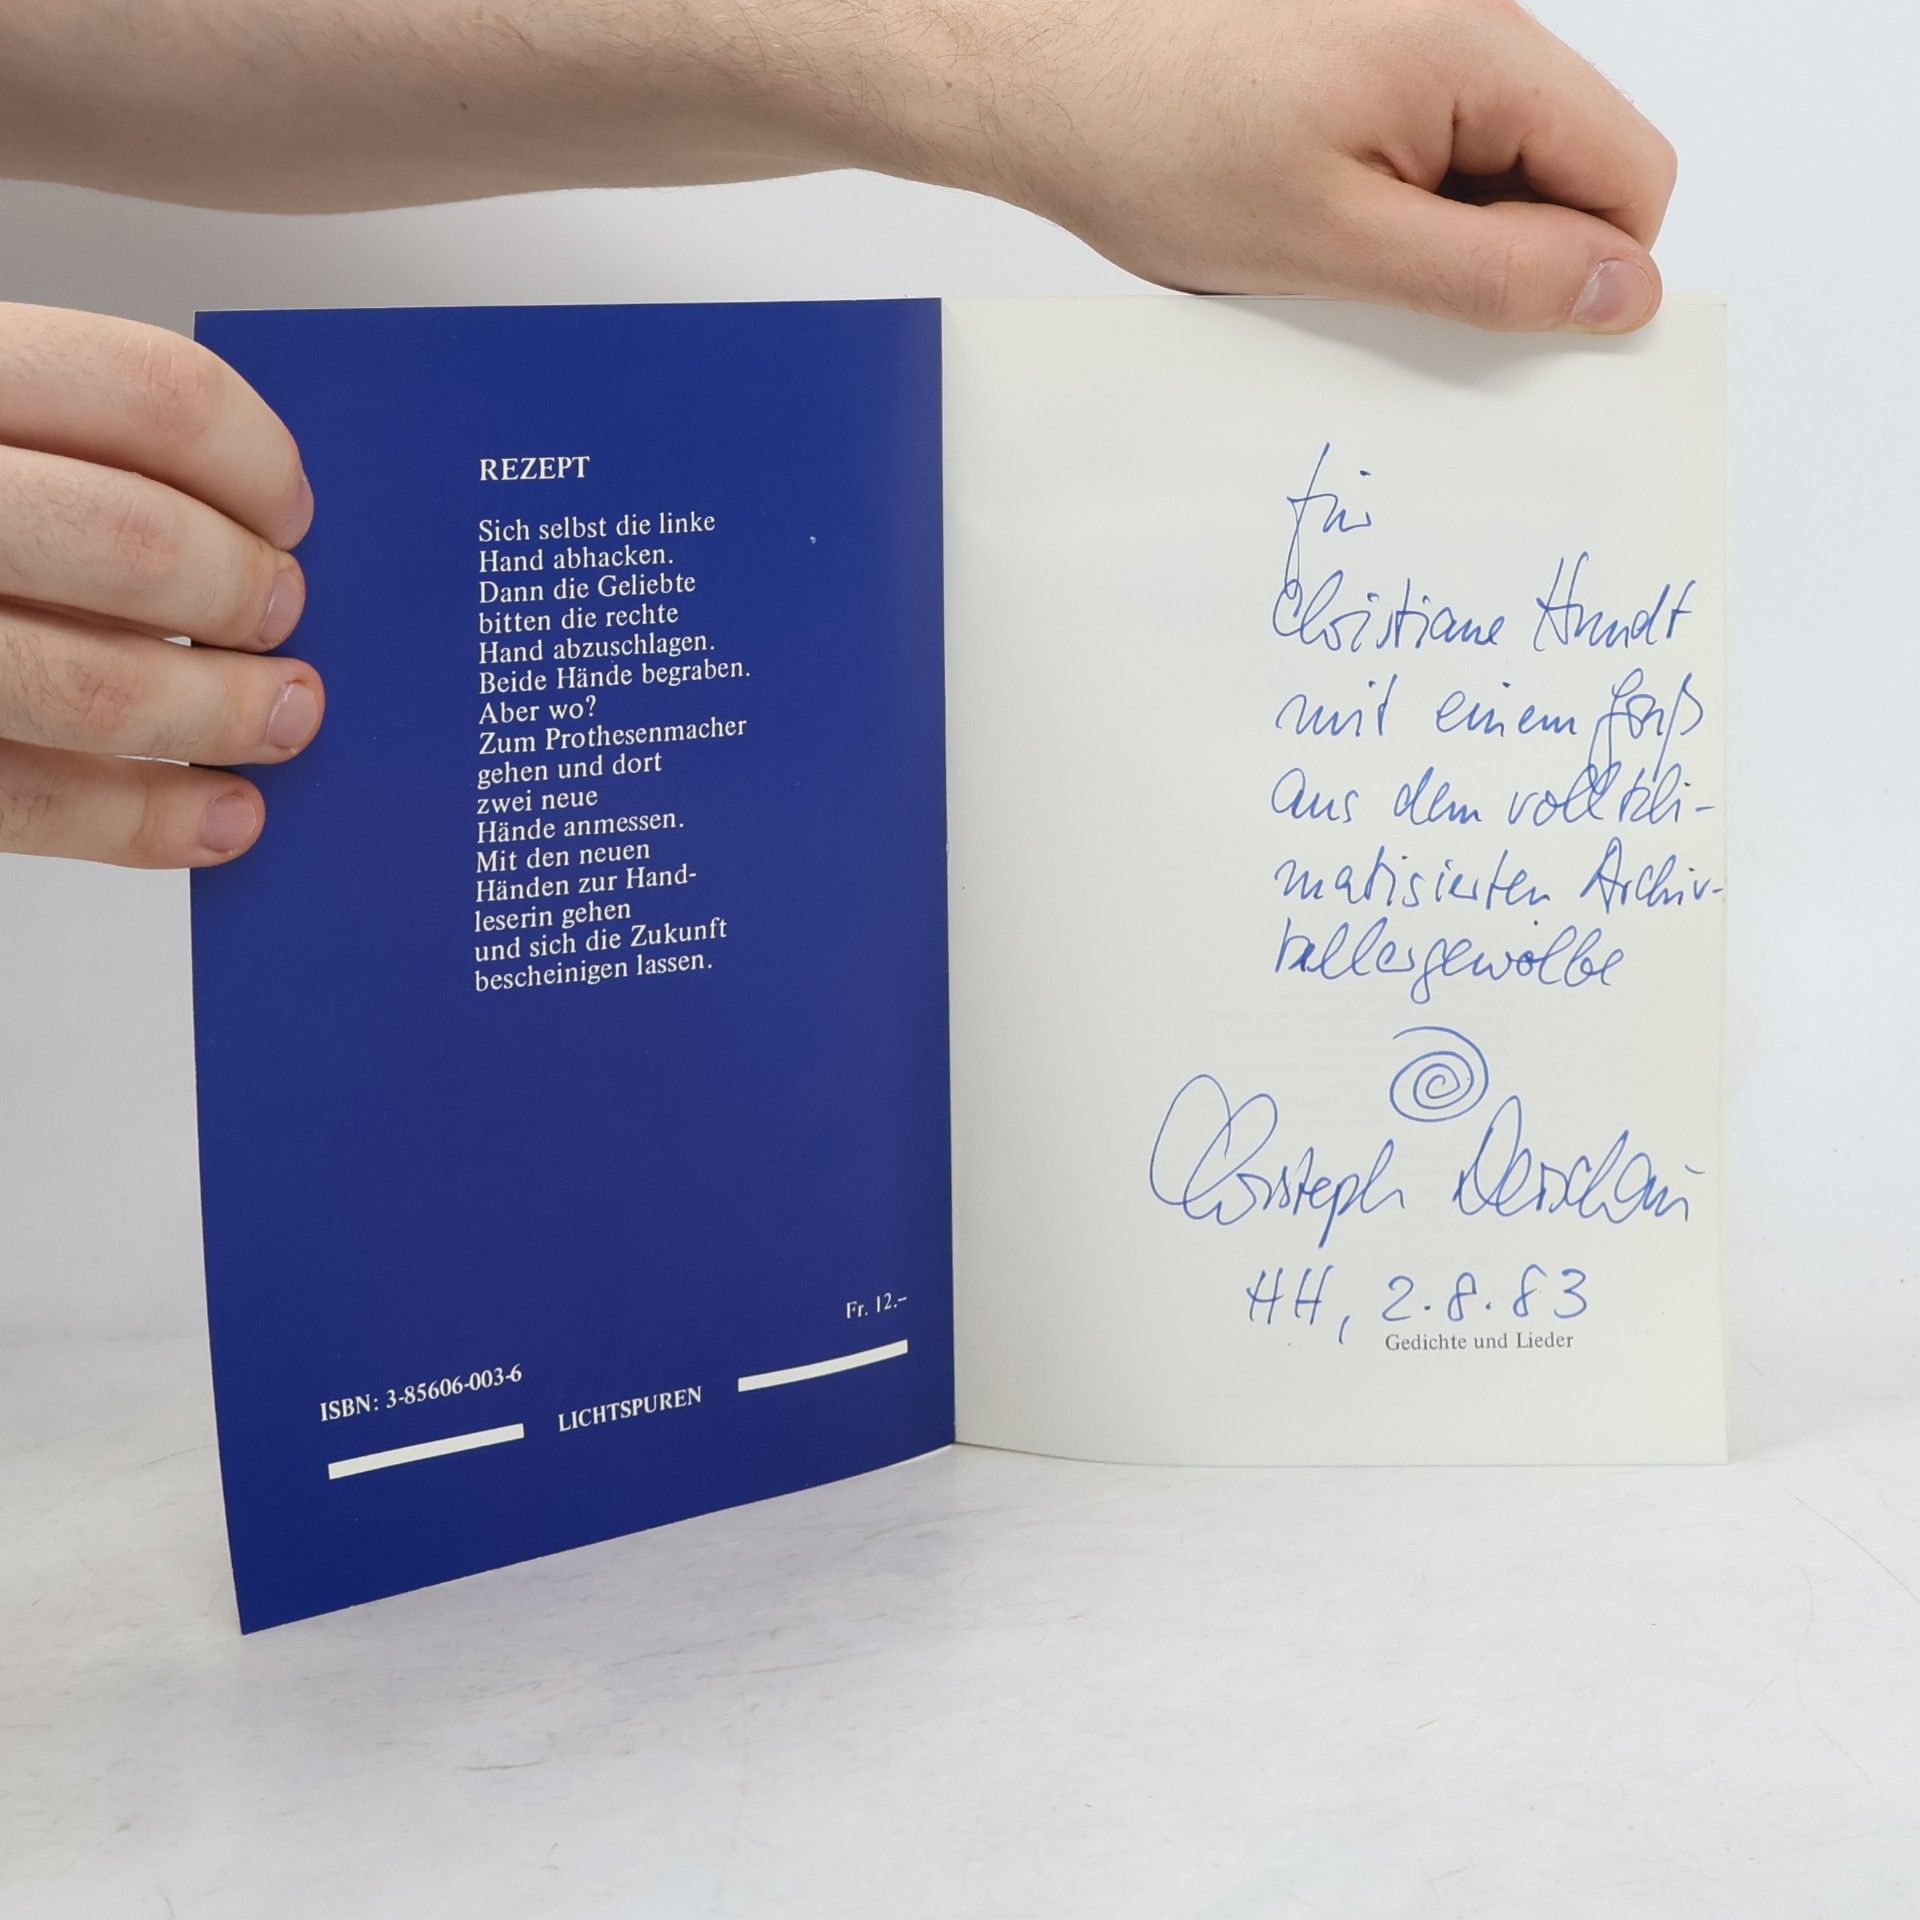 REZEPT
Sich selbst die linke
Hand abhacken.
Dann die Geliebte
bitten die rechte
Hand abzuschlagen.
Beide Hände begraben.
Aber wo?
Zum Prothesenmacher
gehen und dort
zwei neue
Hände anmessen.
Mit den neuen
Händen zur Hand-
leserin gehen
und sich die Zukunft
bescheinigen lassen.
Fr. 12.–
ISBN: 3-85606-003-6
LICHTSPUREN
für
Christiane Hundt
mit einem Gruß
aus dem vollkli-
matisierten Archiv-
kellergewölbe
Christoph Derschau
HH, 2.8.83
Gedichte und Lieder